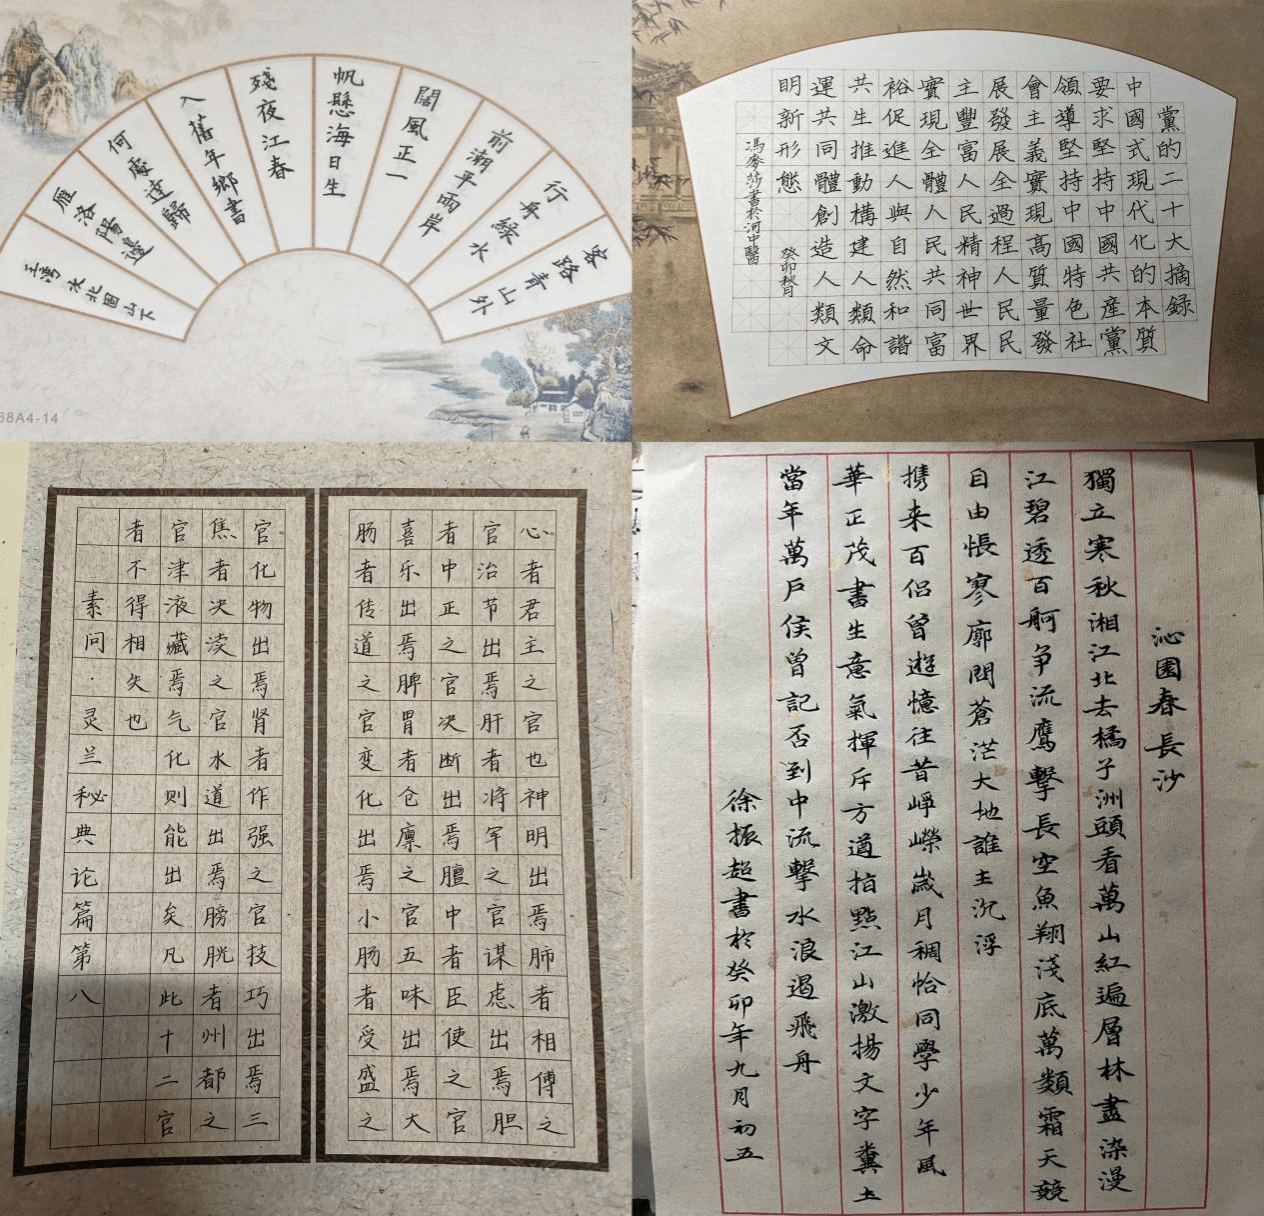 客路青山外
行舟綠水
前潮平兩岸
闊風正一
帆懸海日生
殘夜江春
入舊年鄉書
何處達歸
雁洛陽邊
王灣次北固山下
68A4-14
黨的二十大摘録
中國式現代化的本質
要求堅持中國共產黨
領導堅持中國特色社
會主義實現高質量發
展發展全過程人民民
主豐富人民精神世界
實現全體人民共同富
裕促進人與自然和諧
共生推動構建人類命
運共同體創造人類文
明新形態 癸卯秋月
馮莎書於河中醫
心者君主之官也神明出焉肺者相傅之
官治节出焉肝者将军之官谋虑出焉胆
者中正之官决断出焉膻中者臣使之官
喜乐出焉脾胃者仓廪之官五味出焉大
肠者传道之官变化出焉小肠者受盛之
官化物出焉肾者作强之官技巧出焉三
焦者决渎之官水道出焉膀胱者州都之
官津液藏焉气化则能出矣凡此十二官
者不得相失也
素问·灵兰秘典论篇第八
沁園春長沙
獨立寒秋湘江北去橘子洲頭看萬山紅遍層林盡染漫
江碧透百舸争流鷹擊長空魚翔淺底萬類霜天競
自由悵寥廓問蒼茫大地誰主沉浮
携来百侣曾遊憶往昔崢嶸歲月稠恰同學少年風
華正茂書生意氣揮斥方遒指點江山激揚文字糞土
當年萬戶侯曾記否到中流擊水浪遏飛舟
徐振超書於癸卯年九月初五